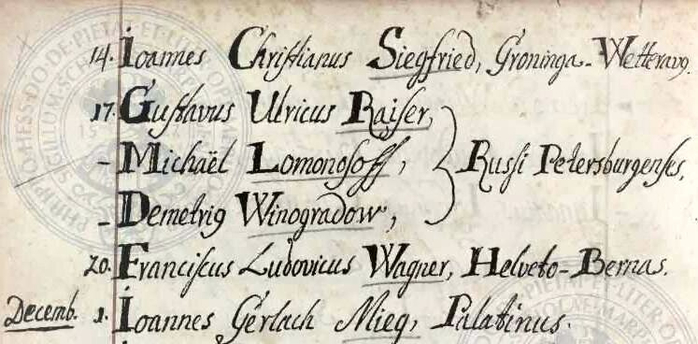 14. Ioannes Christianus Siegfried, Groninga-Wetteravg.
17. Gustavus Ulricus Raiser,
– Michaël Lomonosoff, } Russi Petersburgenses,
– Demetrig Winogradow,
20. Franciscus Ludovicus Wagner, Helveto-Bernas.
Decemb. 1. Ioannes Gerlach Mieg, Palatinus.